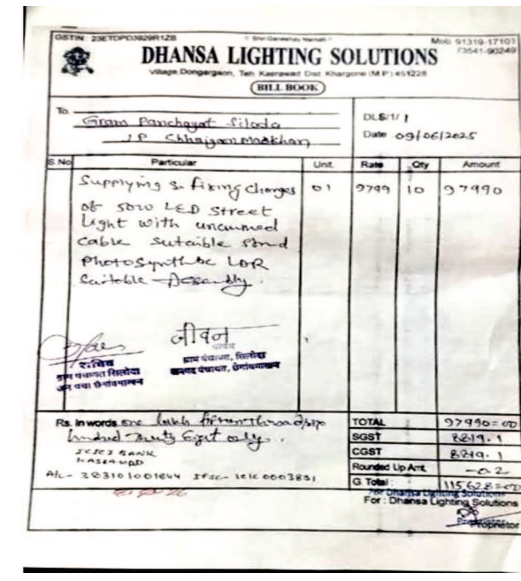 GSTIN: 23ETDPD3829R1ZB
|| Shri Ganeshay Namah ||
Mob. 91319-17101
73541-90249
DHANSA LIGHTING SOLUTIONS
Village Dongargaon, Teh. Kasrawad Dist. Khargone (M.P.) 451228
(BILL BOOK)
To. Gram Panchayat Siloda
J.P. Chhaigaon Makhan
DLS/1/ 1
Date 09/06/2025
S.No Particular Unit. Rate Qty Amount
Supplying & fixing Charges 01 9799 10 97990
of 50W LED Street
Light with
Cable Sutaible
Photosynthetic LDR
Suitable Assembly.
जीवन
सचिव
ग्राम पंचायत सिलोदा
ग्राम पंचायत, सिलोदा
जनपद पंचायत, छैगांवमाखन
Rs. In words one lakh
only.
ICICI BANK
KASRAWAD
A/c- 383101001644 IFSC- ICIC0003831
TOTAL 97990=00
SGST 8819.1
CGST 8819.1
Rounded Up Amt. -0.2
G. Total : 115628=00
For : Dhansa Lighting Solutions
For Dhansa Lighting Solutions
Proprietor